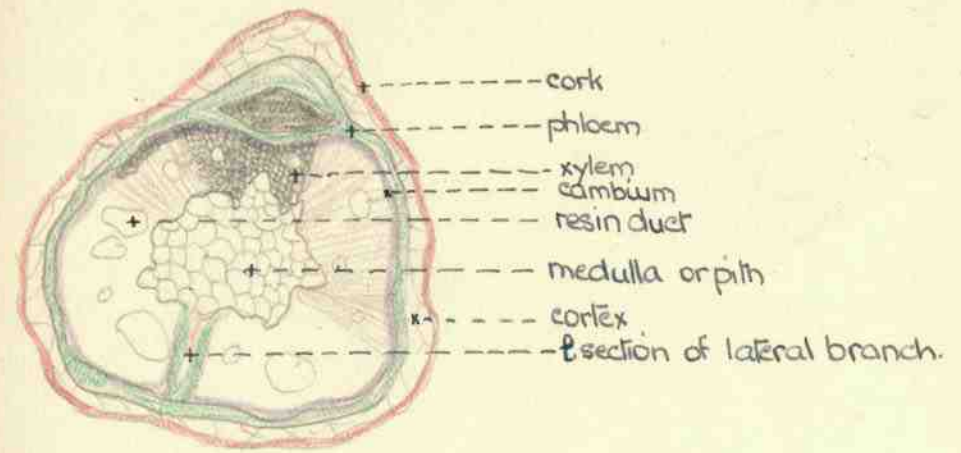 cork
phloem
xylem
cambium
resin duct
medulla or pith
cortex
l section of lateral branch.